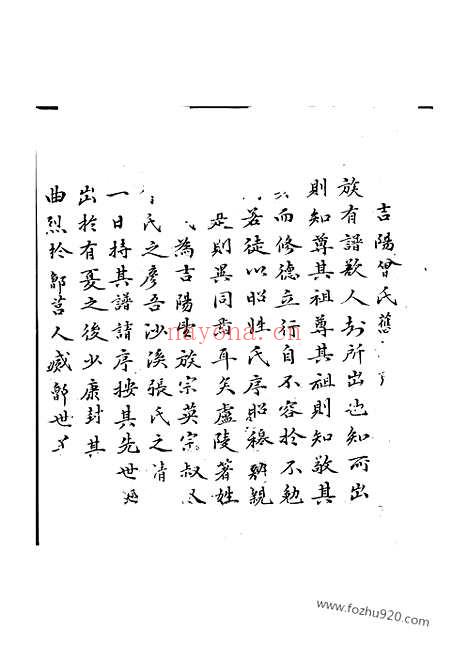 吉陽曾氏舊
族有譜欵人於所出也知所出
則知尊其祖尊其祖則知敬其
而修德立行自不容於不勉
若徒以昭姓氏序昭穆辨親
是則異同焉耳矣盧陵著姓
為吉陽曾故宗英宗叔
氏之彥吾沙溪張氏之清
一日持其譜請序按其先世
出於有夏之後少康封其
曲烈於鄫莒人滅鄫世
nayona.cn
www.fozhu920.com